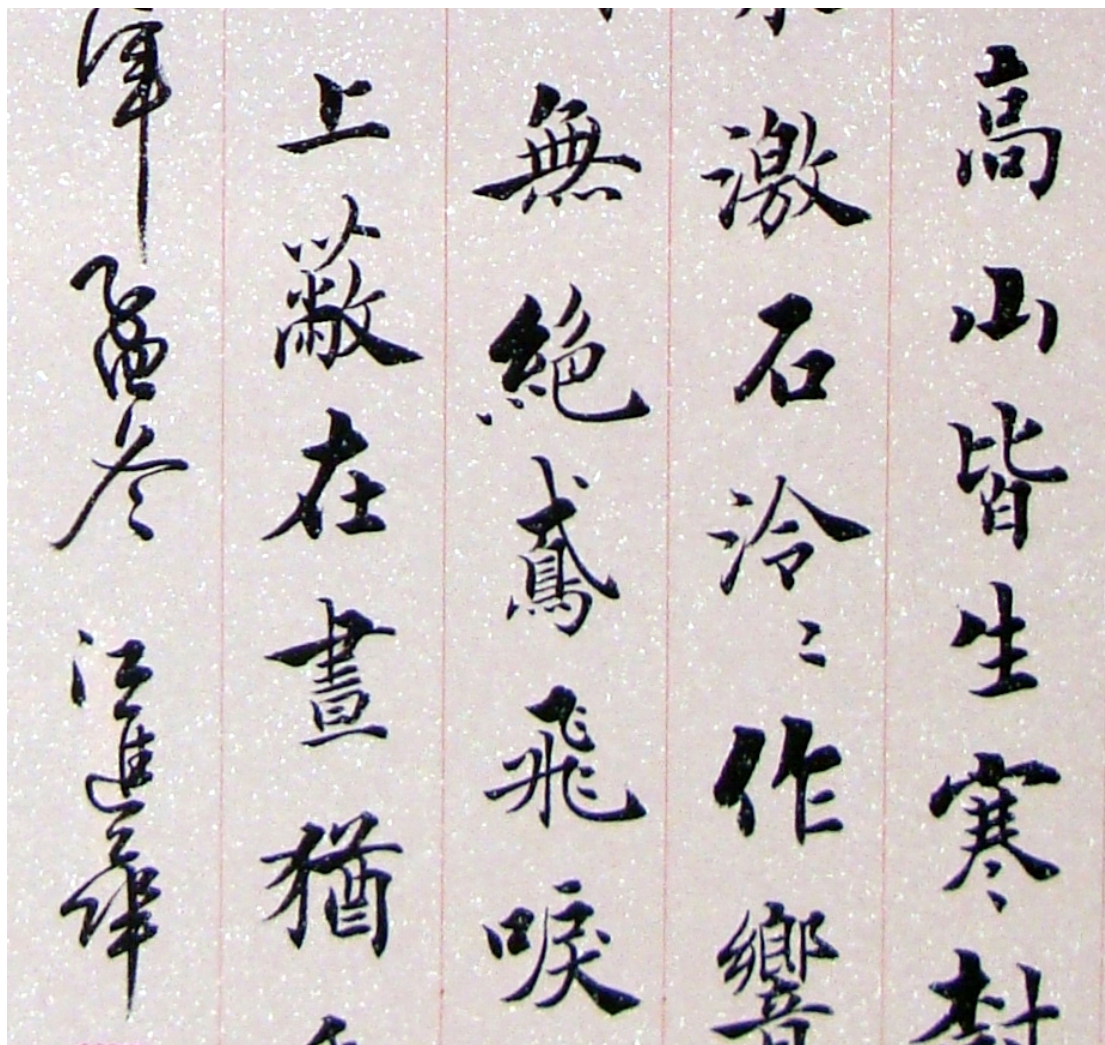 高山皆生寒樹
激石泠〻作響
無絕鳶飛唳
上蔽在晝猶
孟冬 江進華